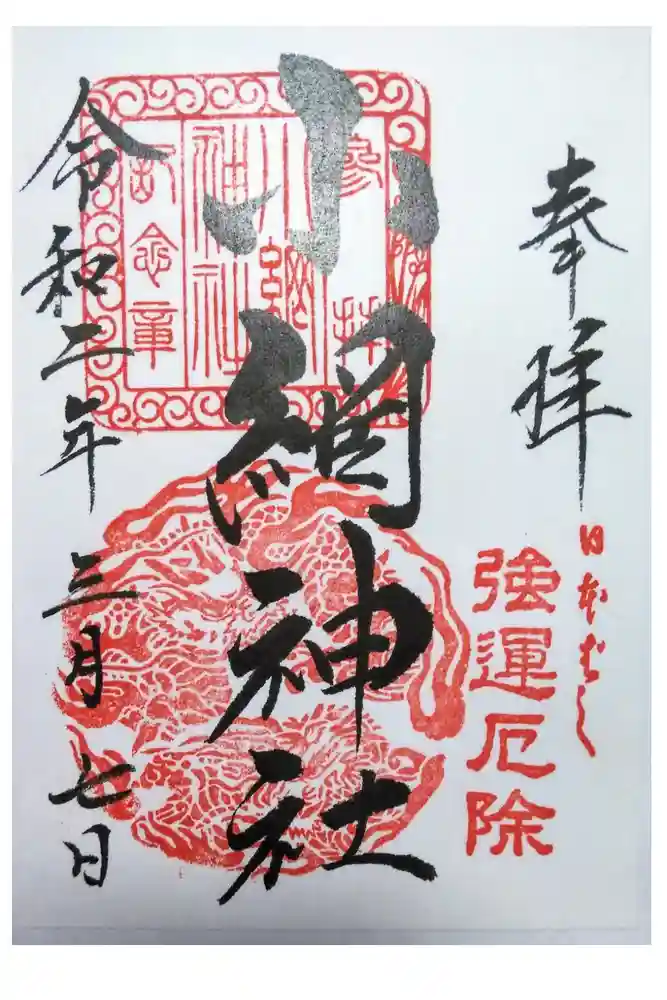 奉拝
日本ばし
強運厄除
小網神社
参拝
小網神社
記念章
令和二年 三月 七日